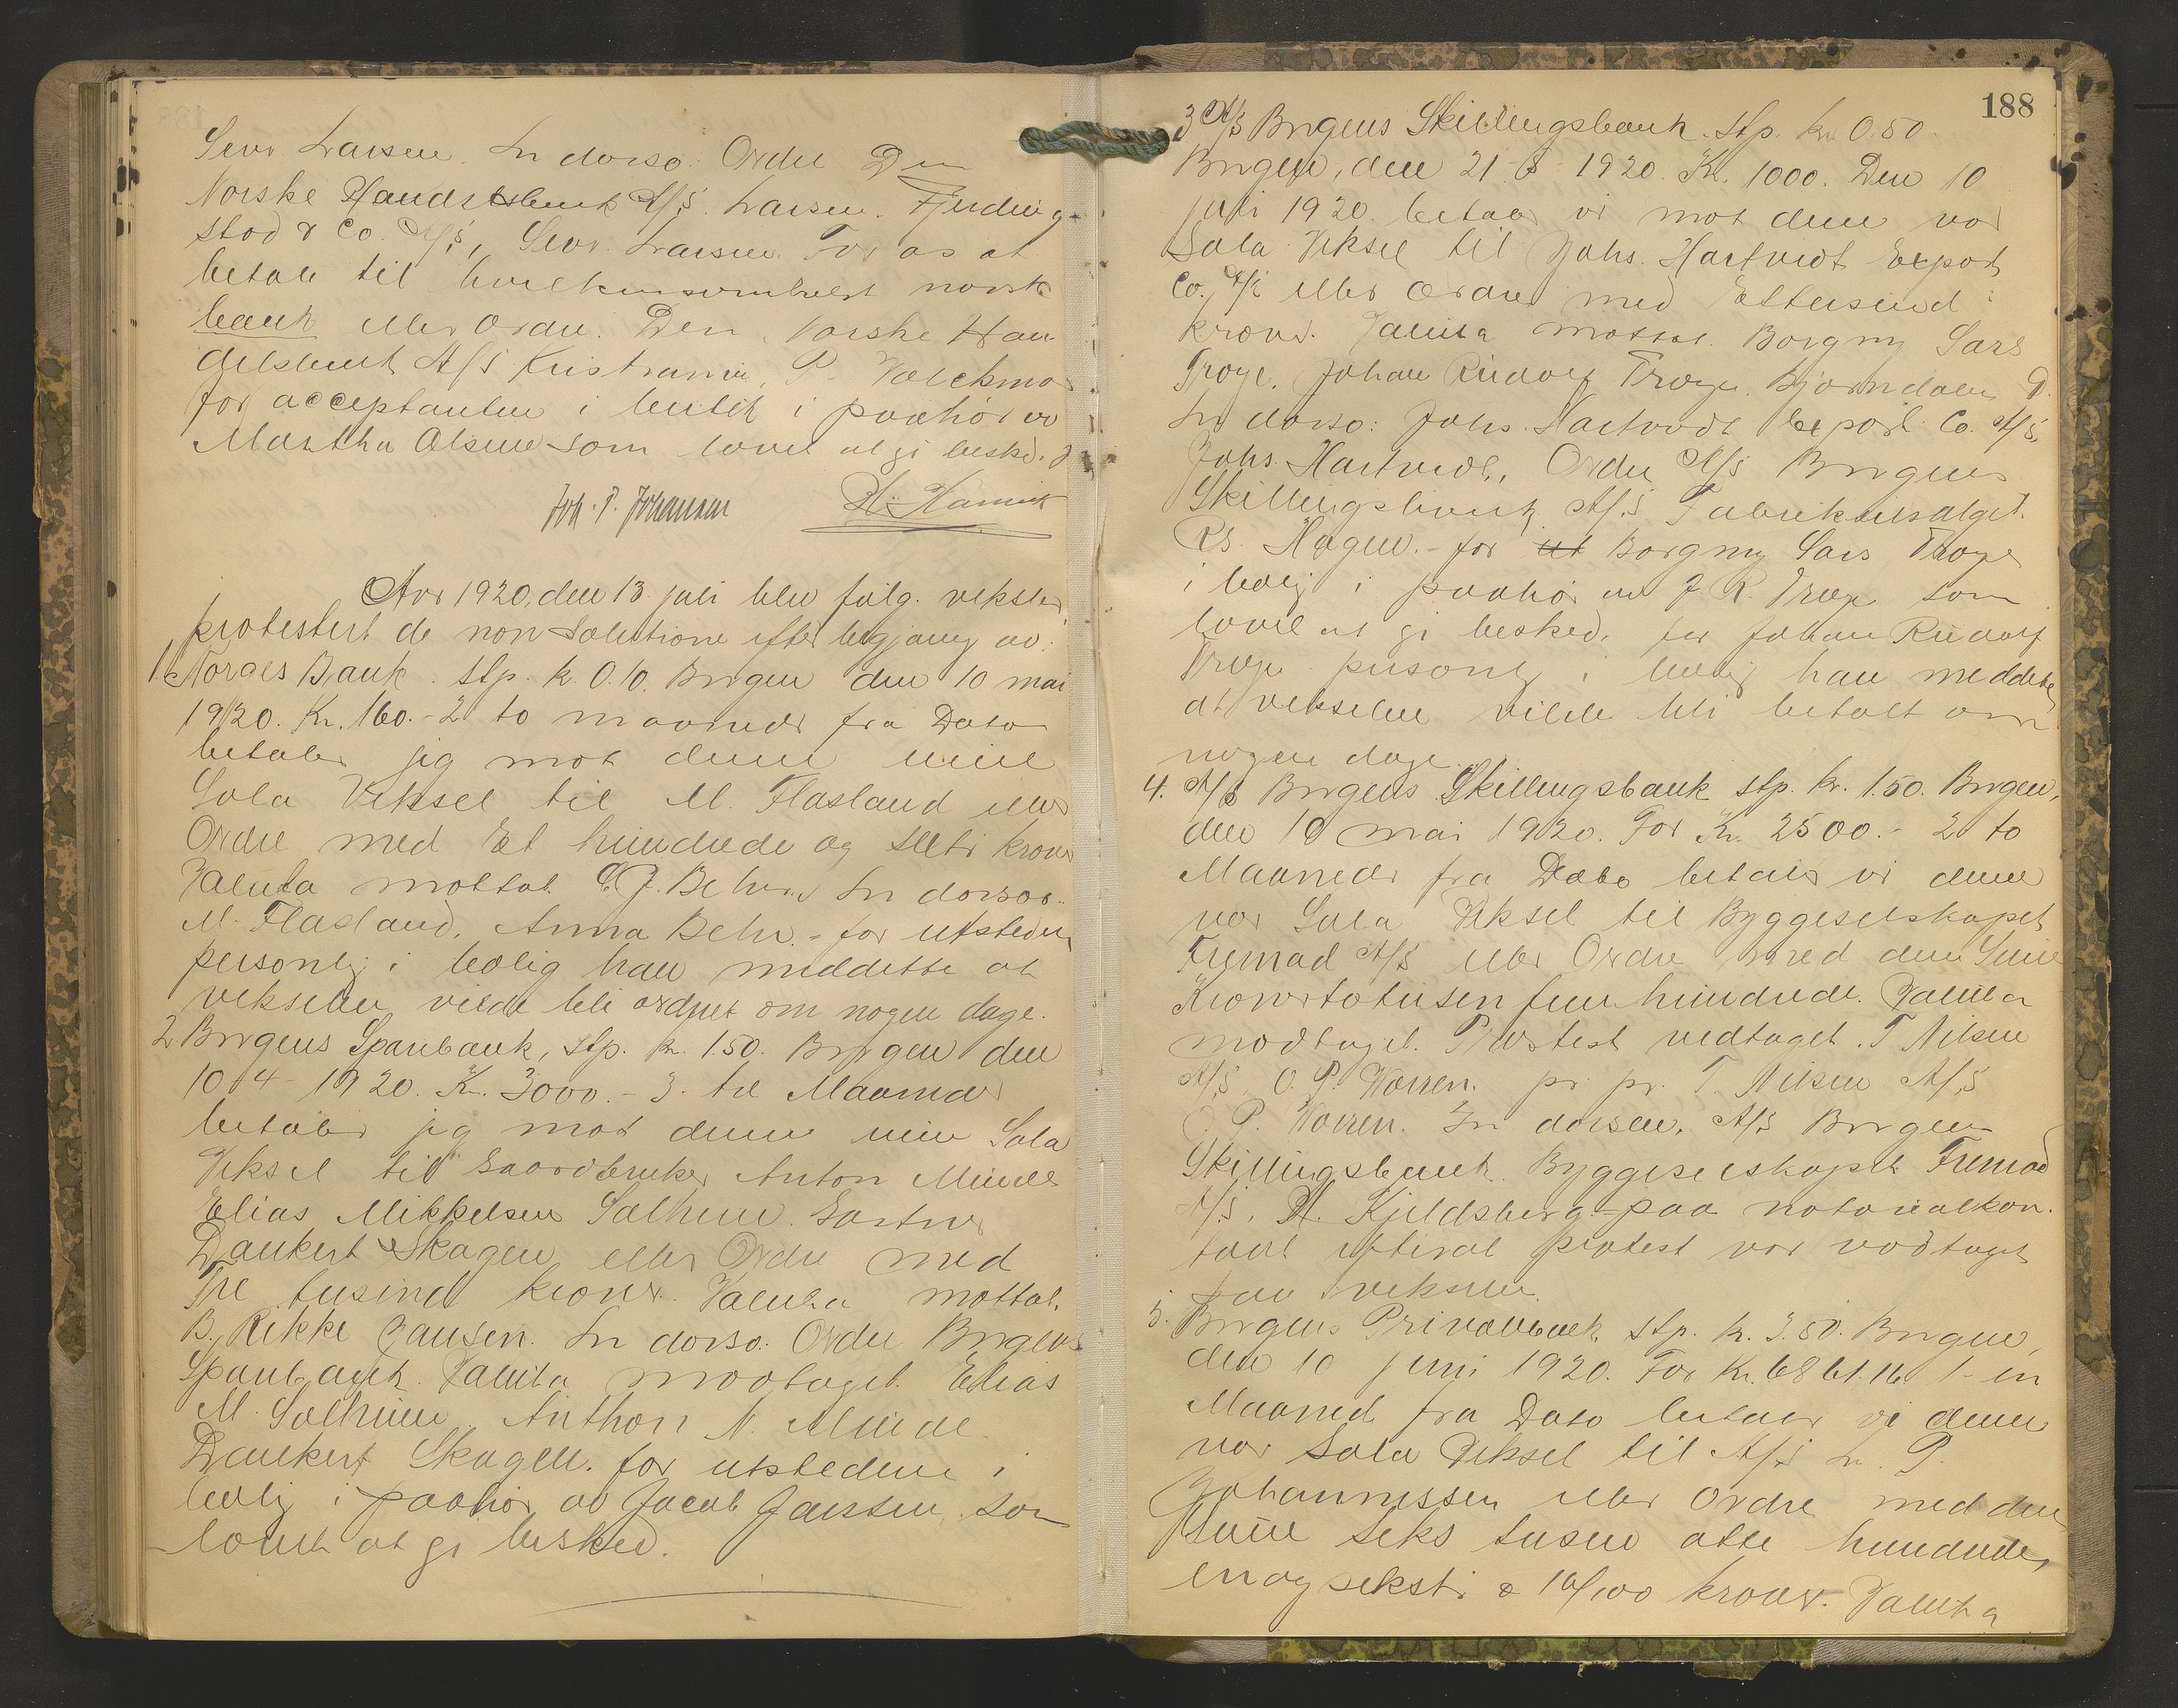 Sevr. Larsen. In dorso: Ordre Den
Norske Handelsbank A/S. Larsen. Fjerding-
stad & Co. A/S, Sevr. Larsen. For os at
betale til hvilkensomhelst norsk
bank eller Ordre. Den Norske Han-
delsbank A/S Kristiania, P.
for acceptanten i butik i paahør av
Martha Olsen som lovet at gi besked.
Joh. P. Johansen
Aar 1920, den 13 juli blev følg. veksler
protestert de non solutione efter begjæring av:
1. Norges Bank. Stp. k. 0.10. Bergen den 10 mai
1920. Kr. 160.- 2 to maaneder fra Dato
betaler jeg mot denne min
Sola Veksel til M. Flasland eller
Ordre med Et hundrede og seksti kroner
Valuta mottat C. J. Behr. In dorso:
M. Flasland, Anna Behr. - for utstederen
personlig i bolig han meddelte at
vekselen vilde bli ordnet om nogen dage.
2 Bergens Sparebank, Stp. kr. 1.50. Bergen den
10-4-1920. Kr. 3000.- 3. tre Maaneder
betaler jeg mot denne min Sola
Veksel til Gaardbruker Anton Minde
Elias Mikkelsen Solheim. Gartner
Dankert Skagen eller Ordre med
Tre tusind kroner. Valuta mottat.
B. Rikke Jansen. In dorso: Ordre Bergens
Sparebank. Valuta modtaget. Elias
M. Solheim. Anthon N. Minde.
Dankert Skagen. for utstederen i
bolig i paahør av Jacob Jansen, som
lovet at gi besked.
188
3 A/S Bergens Skillingsbank. Stp. kr. 0.50
Bergen, den 21-5-1920. Kr. 1000. Den 10
juli 1920. betaler vi mot denne vor
Sola Veksel til Johs. Hartvedt Export
Co. A/S eller Ordre med Ettusind
kroner. Valuta mottat. Borgny Sars
Troye. Johan Rudolf Troye. Bjørndalen
In dorso: Johs. Hartvedt Export Co. A/S,
Johs. Hartvedt, Ordre A/S Bergens
Skillingsbank A/S Fabrikutsalget.
Rs. Hagen. - for ut Borgny Sars Troye
i bolig i paahør av J. R. Troye som
lovet at gi besked, for Johan Rudolf
Troye personlig i bolig han meddelte,
at vekselen vilde bli betalt om
nogen dage.
4. A/S Bergens Skillingsbank stp. kr. 1.50. Bergen,
den 10 mai 1920. For Kr. 2500.- 2 to
Maaneder fra Dato betaler vi denne
vor Sola Veksel til Byggeselskapet
Fremad A/S eller Ordre med den Sum
Kroner totusen fem hundrede. Valuta
modtaget. Protest vedtaget. T. Nilsen
A/S O. P. Worren. pr. pr. T. Nilsen A/S
O. P. Worren. In dorsen, A/S Bergens
Skillingsbank. Byggeselskapet Fremad
A/S, H. Kjeldsberg - paa notarialkon-
toret efterat protest var vedtaget
paa vekselen.
5. Bergens Privatbank, stp. kr. 3.50. Bergen,
den 10 juni 1920. For Kr. 6861.16 1- en
Maaned fra Dato betaler vi denne
vor Sola Veksel til A/S L. P.
Johannessen eller Ordre med den
Sum seks tusen otte hundrede,
enogseksti & 16/100 kroner. Valuta